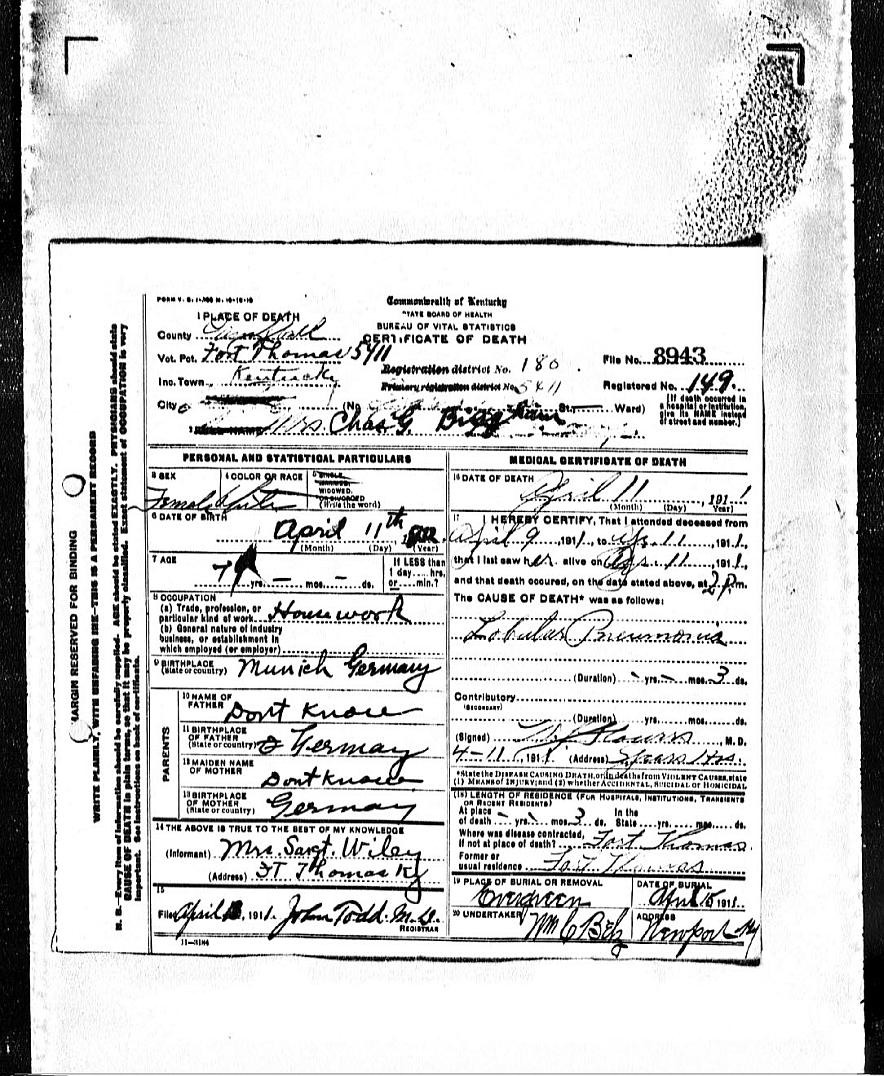 FORM V. S. 1
Commonwealth of Kentucky
STATE BOARD OF HEALTH
BUREAU OF VITAL STATISTICS
CERTIFICATE OF DEATH
1 PLACE OF DEATH
County Campbell
Vot. Pct. Fort Thomas 5411
Registration district No. 180
File No. 8943
Inc. Town Kentucky
Primary registration district No. 5411
Registered No. 149.
City
(No.
St. Ward)
[If death occurred in a hospital or institution, give its NAME instead of street and number.]
Mrs Chas G.
PERSONAL AND STATISTICAL PARTICULARS
3 SEX
Female
4 COLOR OR RACE
5 SINGLE, MARRIED, WIDOWED, OR DIVORCED
(Write the word)
6 DATE OF BIRTH
April 11th
(Month) (Day) (Year)
7 AGE
yrs. — mos. — ds.
If LESS than 1 day ... hrs. or ... min.?
8 OCCUPATION
(a) Trade, profession, or particular kind of work Housework
(b) General nature of industry business, or establishment in which employed (or employer)
9 BIRTHPLACE
(State or country) Munich Germany
PARENTS
10 NAME OF FATHER Dont Know
11 BIRTHPLACE OF FATHER (State or country) Germany
12 MAIDEN NAME OF MOTHER Dont Know
13 BIRTHPLACE OF MOTHER (State or country) Germany
14 THE ABOVE IS TRUE TO THE BEST OF MY KNOWLEDGE
(Informant) Mrs. Sargt. Wiley
(Address) Ft Thomas Ky
15
Filed April 1911. John Todd M.D.
REGISTRAR
11-3184
MEDICAL CERTIFICATE OF DEATH
16 DATE OF DEATH
April 11 1911
(Month) (Day) Year)
17 I HEREBY CERTIFY, That I attended deceased from
April 9 1911, to Ap. 11, 1911,
that I last saw her alive on Ap. 11, 1911,
and that death occured, on the date stated above, at 2 P.m.
The CAUSE OF DEATH* was as follows:
Lobular Pneumonia
(Duration) - yrs. - mos. 3 ds.
Contributory
(SECONDARY)
(Duration) yrs. mos. ds.
(Signed) M. D.
4-11, 1911 (Address)
*State the DISEASE CAUSING DEATH, or in deaths from VIOLENT CAUSES, state
(1) MEANS of INJURY; and (2) whether ACCIDENTAL, SUICIDAL or HOMICIDAL
(18) LENGTH OF RESIDENCE (FOR HOSPITALS, INSTITUTIONS, TRANSIENTS
OR RECENT RESIDENTS)
At place of death — yrs. — mos. 3 ds. In the State yrs. mos. ds.
Where was disease contracted, if not at place of death? Fort Thomas.
Former or usual residence Fort Thomas
19 PLACE OF BURIAL OR REMOVAL
Evergreen
DATE OF BURIAL
April 15 1911.
20 UNDERTAKER
Wm C Betz
ADDRESS
Newport Ky
MARGIN RESERVED FOR BINDING
WRITE PLAINLY, WITH UNFADING INK—THIS IS A PERMANENT RECORD
N. B.—Every item of information should be carefully supplied. AGE should be stated EXACTLY. PHYSICIANS should state
CAUSE OF DEATH in plain terms, so that it may be properly classified. Exact statement of OCCUPATION is very
important. See instructions on back of certificate.